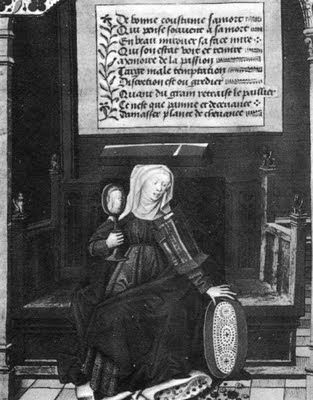 De bonne coustume samort
Qui pense souvent a sa mort
En beau mirouer sa face mire
Qui son estat voit et remire
memoire de la passion
Targe male temptation
Discretion est ou grenier
Quant du grain retraist le paillier
Ce nest que painne et decevance
Damasser plante de chevance